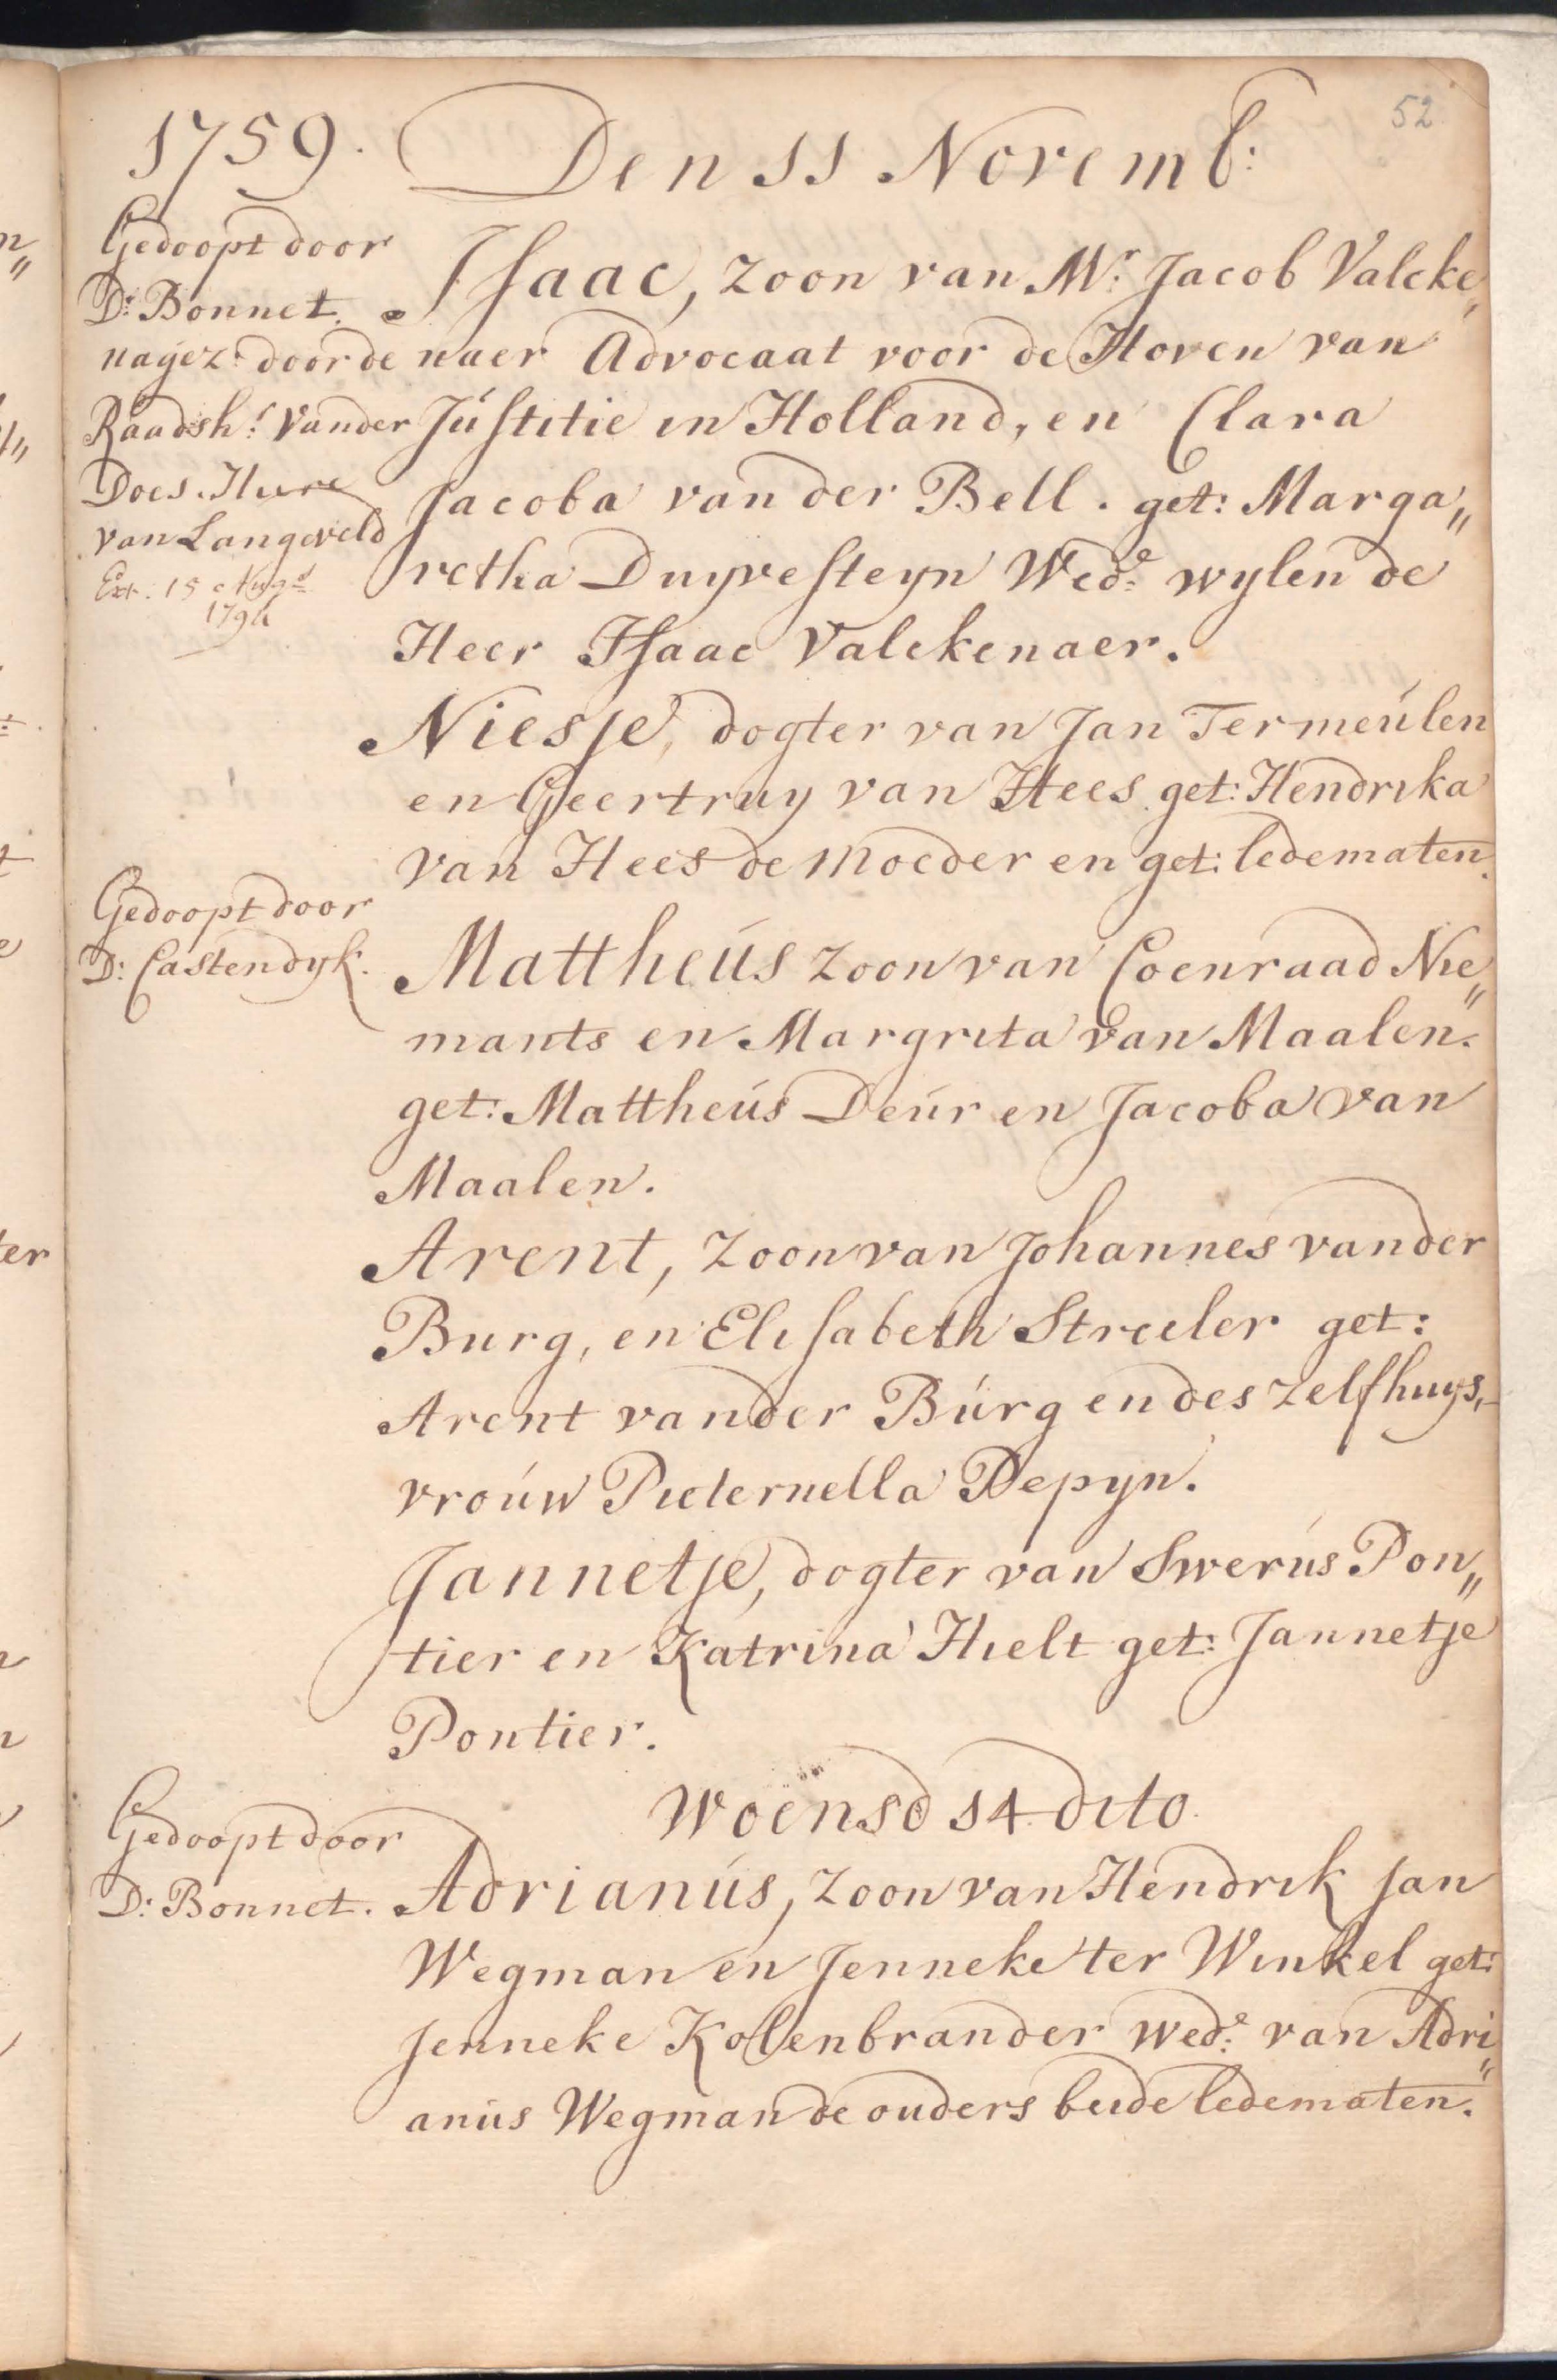 52
1759. Den 11 Novemb:
Gedoopt door
Ds: Bonnet.
nagez: door de
Raadsh.r Vander
Does. Heere
van Langeveld
Ext. 15 Aug.s
Isaac, zoon van Mr. Jacob Valcke„
naer Advocaat voor de Hoven van
Justitie in Holland, en Clara
Jacoba van der Bell. get: Marga„
retha Duyvesteyn Wede. wylen de
Heer Isaac Valckenaer.
Niesje, dogter van Jan Termeulen
en Geertruy van Hees. get: Hendrika
van Hees de Moeder en get: ledematen.
Gedoopt door
D: Castendyk.
Mattheus zoon van Coenraad Nie„
mants en Margrita van Maalen.
get: Mattheus Deur en Jacoba van
Maalen.
Arent, zoon van Johannes vander
Burg, en Elisabeth Streeler get:
Arent vander Burg en des zelfhuys,
vrouw Pieternella Depyn.
Jannetje, dogter van Swerus Pon„
tier en Katrina Hielt get: Jannetje
Pontier.
Woensd 14 dito.
Gedoopt door
D: Bonnet.
Adrianus, zoon van Hendrik Jan
Wegman en Jenneke ter Winkel get:
Jenneke Kolenbrander wede: van Adri„
anus Wegman de ouders beide ledematen.